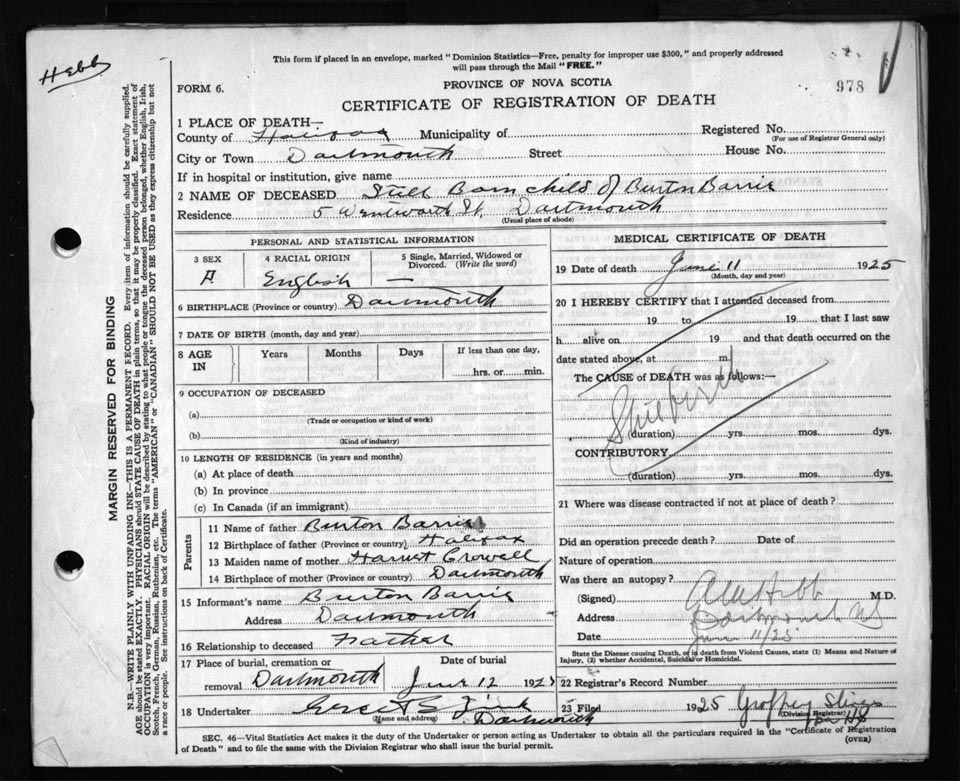 Hebb
This form if placed in an envelope, marked "Dominion Statistics—Free, penalty for improper use $300," and properly addressed
will pass through the Mail "FREE."
PROVINCE OF NOVA SCOTIA
978
FORM 6.
CERTIFICATE OF REGISTRATION OF DEATH
MARGIN RESERVED FOR BINDING
N.B.—WRITE PLAINLY WITH UNFADING INK—THIS IS A PERMANENT RECORD. Every item of information should be carefully supplied.
AGE should be stated EXACTLY. PHYSICIANS should STATE CAUSE OF DEATH in plain terms, so that it may be properly classified. Exact statement of
OCCUPATION is very important. RACIAL ORIGIN will be described by stating to what people or tongue the deceased person belonged, whether English, Irish,
Scotch, French, German, Russian, Ruthenian, etc. The terms "AMERICAN" or "CANADIAN" SHOULD NOT BE USED as they express citizenship but not
a race or people. See instructions on back of Certificate.
1 PLACE OF DEATH—
County of Halifax Municipality of Registered No.
(For use of Registrar General only)
City or Town Dartmouth Street House No.
If in hospital or institution, give name
2 NAME OF DECEASED Still Born child of Burton Barrie
Residence 5 Wentworth St, Dartmouth
(Usual place of abode)
PERSONAL AND STATISTICAL INFORMATION
3 SEX 4 RACIAL ORIGIN 5 Single, Married, Widowed or
Divorced. (Write the word)
English —
6 BIRTHPLACE (Province or country) Dartmouth
7 DATE OF BIRTH (month, day and year)
8 AGE IN Years Months Days If less than one day,
hrs. or min.
9 OCCUPATION OF DECEASED
(a)
(Trade or occupation or kind of work)
(b)
(Kind of industry)
10 LENGTH OF RESIDENCE (in years and months)
(a) At place of death
(b) In province
(c) In Canada (if an immigrant)
Parents
11 Name of father Burton Barrie
12 Birthplace of father (Province or country) Halifax
13 Maiden name of mother Harriet Crowell
14 Birthplace of mother (Province or country) Dartmouth
15 Informant's name Burton Barrie
Address Dartmouth
16 Relationship to deceased Father
17 Place of burial, cremation or Date of burial
removal Dartmouth June 12 1925
18 Undertaker Zink
(Name and address) Dartmouth
MEDICAL CERTIFICATE OF DEATH
19 Date of death June 11 1925
(Month, day and year)
20 I HEREBY CERTIFY that I attended deceased from
19 to 19 that I last saw
h alive on 19 and that death occurred on the
date stated above, at m.
The CAUSE of DEATH was as follows:—
Stillbirth
(duration) yrs. mos. dys.
CONTRIBUTORY
(duration) yrs. mos. dys.
21 Where was disease contracted if not at place of death?
Did an operation precede death? Date of
Nature of operation
Was there an autopsy?
(Signed) Hebb M.D.
Address Dartmouth NS
Date June 11/25
State the Disease causing Death, or in death from Violent Causes, state (1) Means and Nature of
Injury, (2) whether Accidental, Suicidal or Homicidal.
22 Registrar's Record Number
23 Filed 1925
(Division Registrar)
SEC. 46—Vital Statistics Act makes it the duty of the Undertaker or person acting as Undertaker to obtain all the particulars required in the "Certificate of Registration
of Death" and to file the same with the Division Registrar who shall issue the burial permit. (OVER)